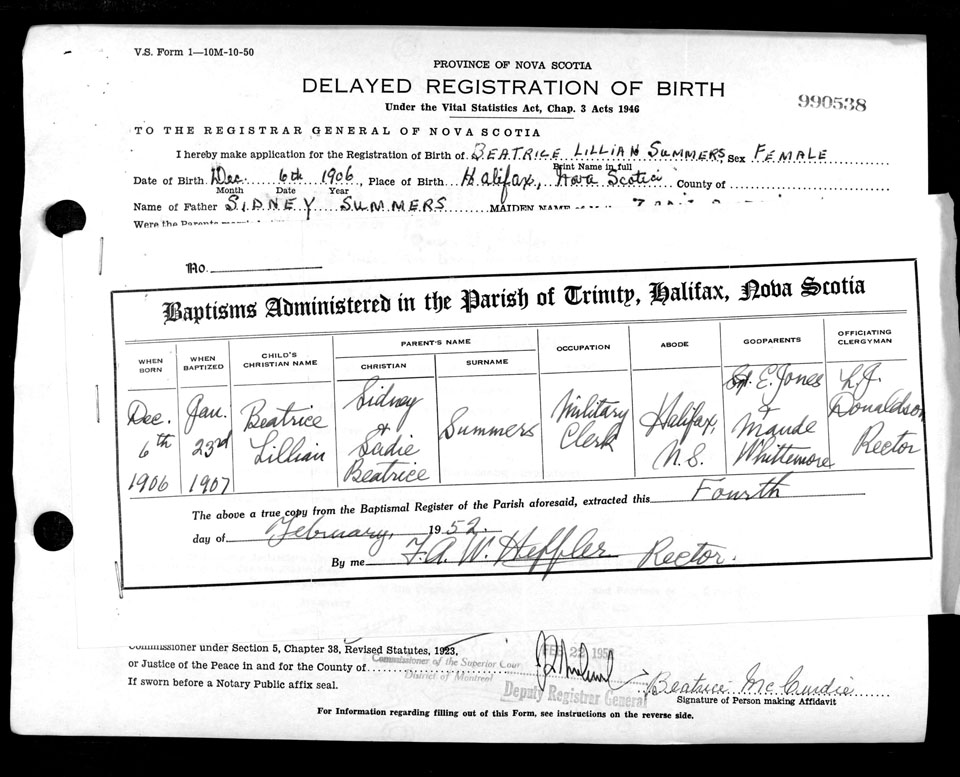 V.S. Form 1—10M-10-50
PROVINCE OF NOVA SCOTIA
DELAYED REGISTRATION OF BIRTH
990538
Under the Vital Statistics Act, Chap. 3 Acts 1946
TO THE REGISTRAR GENERAL OF NOVA SCOTIA
I hereby make application for the Registration of Birth of BEATRICE LILLIAN SUMMERS Sex FEMALE
Print Name in full
Date of Birth Dec. 6th 1906, Place of Birth Halifax, Nova Scotia County of
Month Date Year
Name of Father SIDNEY SUMMERS MAIDEN NAME
Were the Parents
No.
Baptisms Administered in the Parish of Trinity, Halifax, Nova Scotia
WHEN BORN WHEN BAPTIZED CHILD'S CHRISTIAN NAME PARENT'S NAME CHRISTIAN SURNAME OCCUPATION ABODE GODPARENTS OFFICIATING CLERGYMAN
Dec. 6th 1906
Jan. 23rd 1907
Beatrice Lillian
Sidney & Sadie Beatrice
Summers
Military Clerk
Halifax, N.S.
E. Jones & Maude Whittemore
L.J. Donaldson Rector
The above a true copy from the Baptismal Register of the Parish aforesaid, extracted this Fourth
day of February, 1952.
By me F.A.W. Heffler Rector.
Commissioner under Section 5, Chapter 38, Revised Statutes, 1923,
or Justice of the Peace in and for the County of
Commissioner of the Superior Court
District of Montreal
If sworn before a Notary Public affix seal.
FEB 22
Deputy Registrar General
Beatrice McCurdie
Signature of Person making Affidavit
For Information regarding filling out of this Form, see instructions on the reverse side.